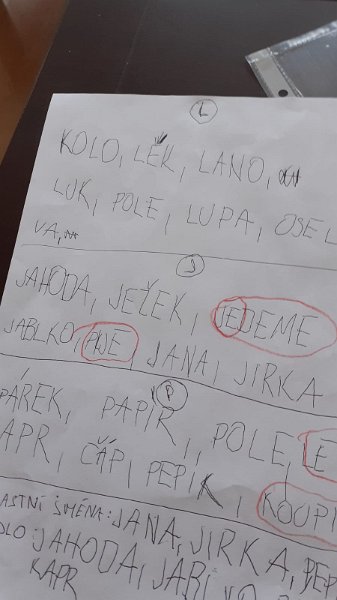 L
KOLO, LÉK, LANO,
LUK, POLE, LUPA, OSEL
VA,
J
JAHODA, JEŽEK, JEDEME
JABLKO, PIJE, JANA, JIRKA
P
PÁREK, PAPÍR, POLE, LE
APR, ČÁP, PEPÍK, KOUPI
LASTNÍ JMÉNA: JANA, JIRKA, PEP
DLO: JAHODA, JABL
KAPR